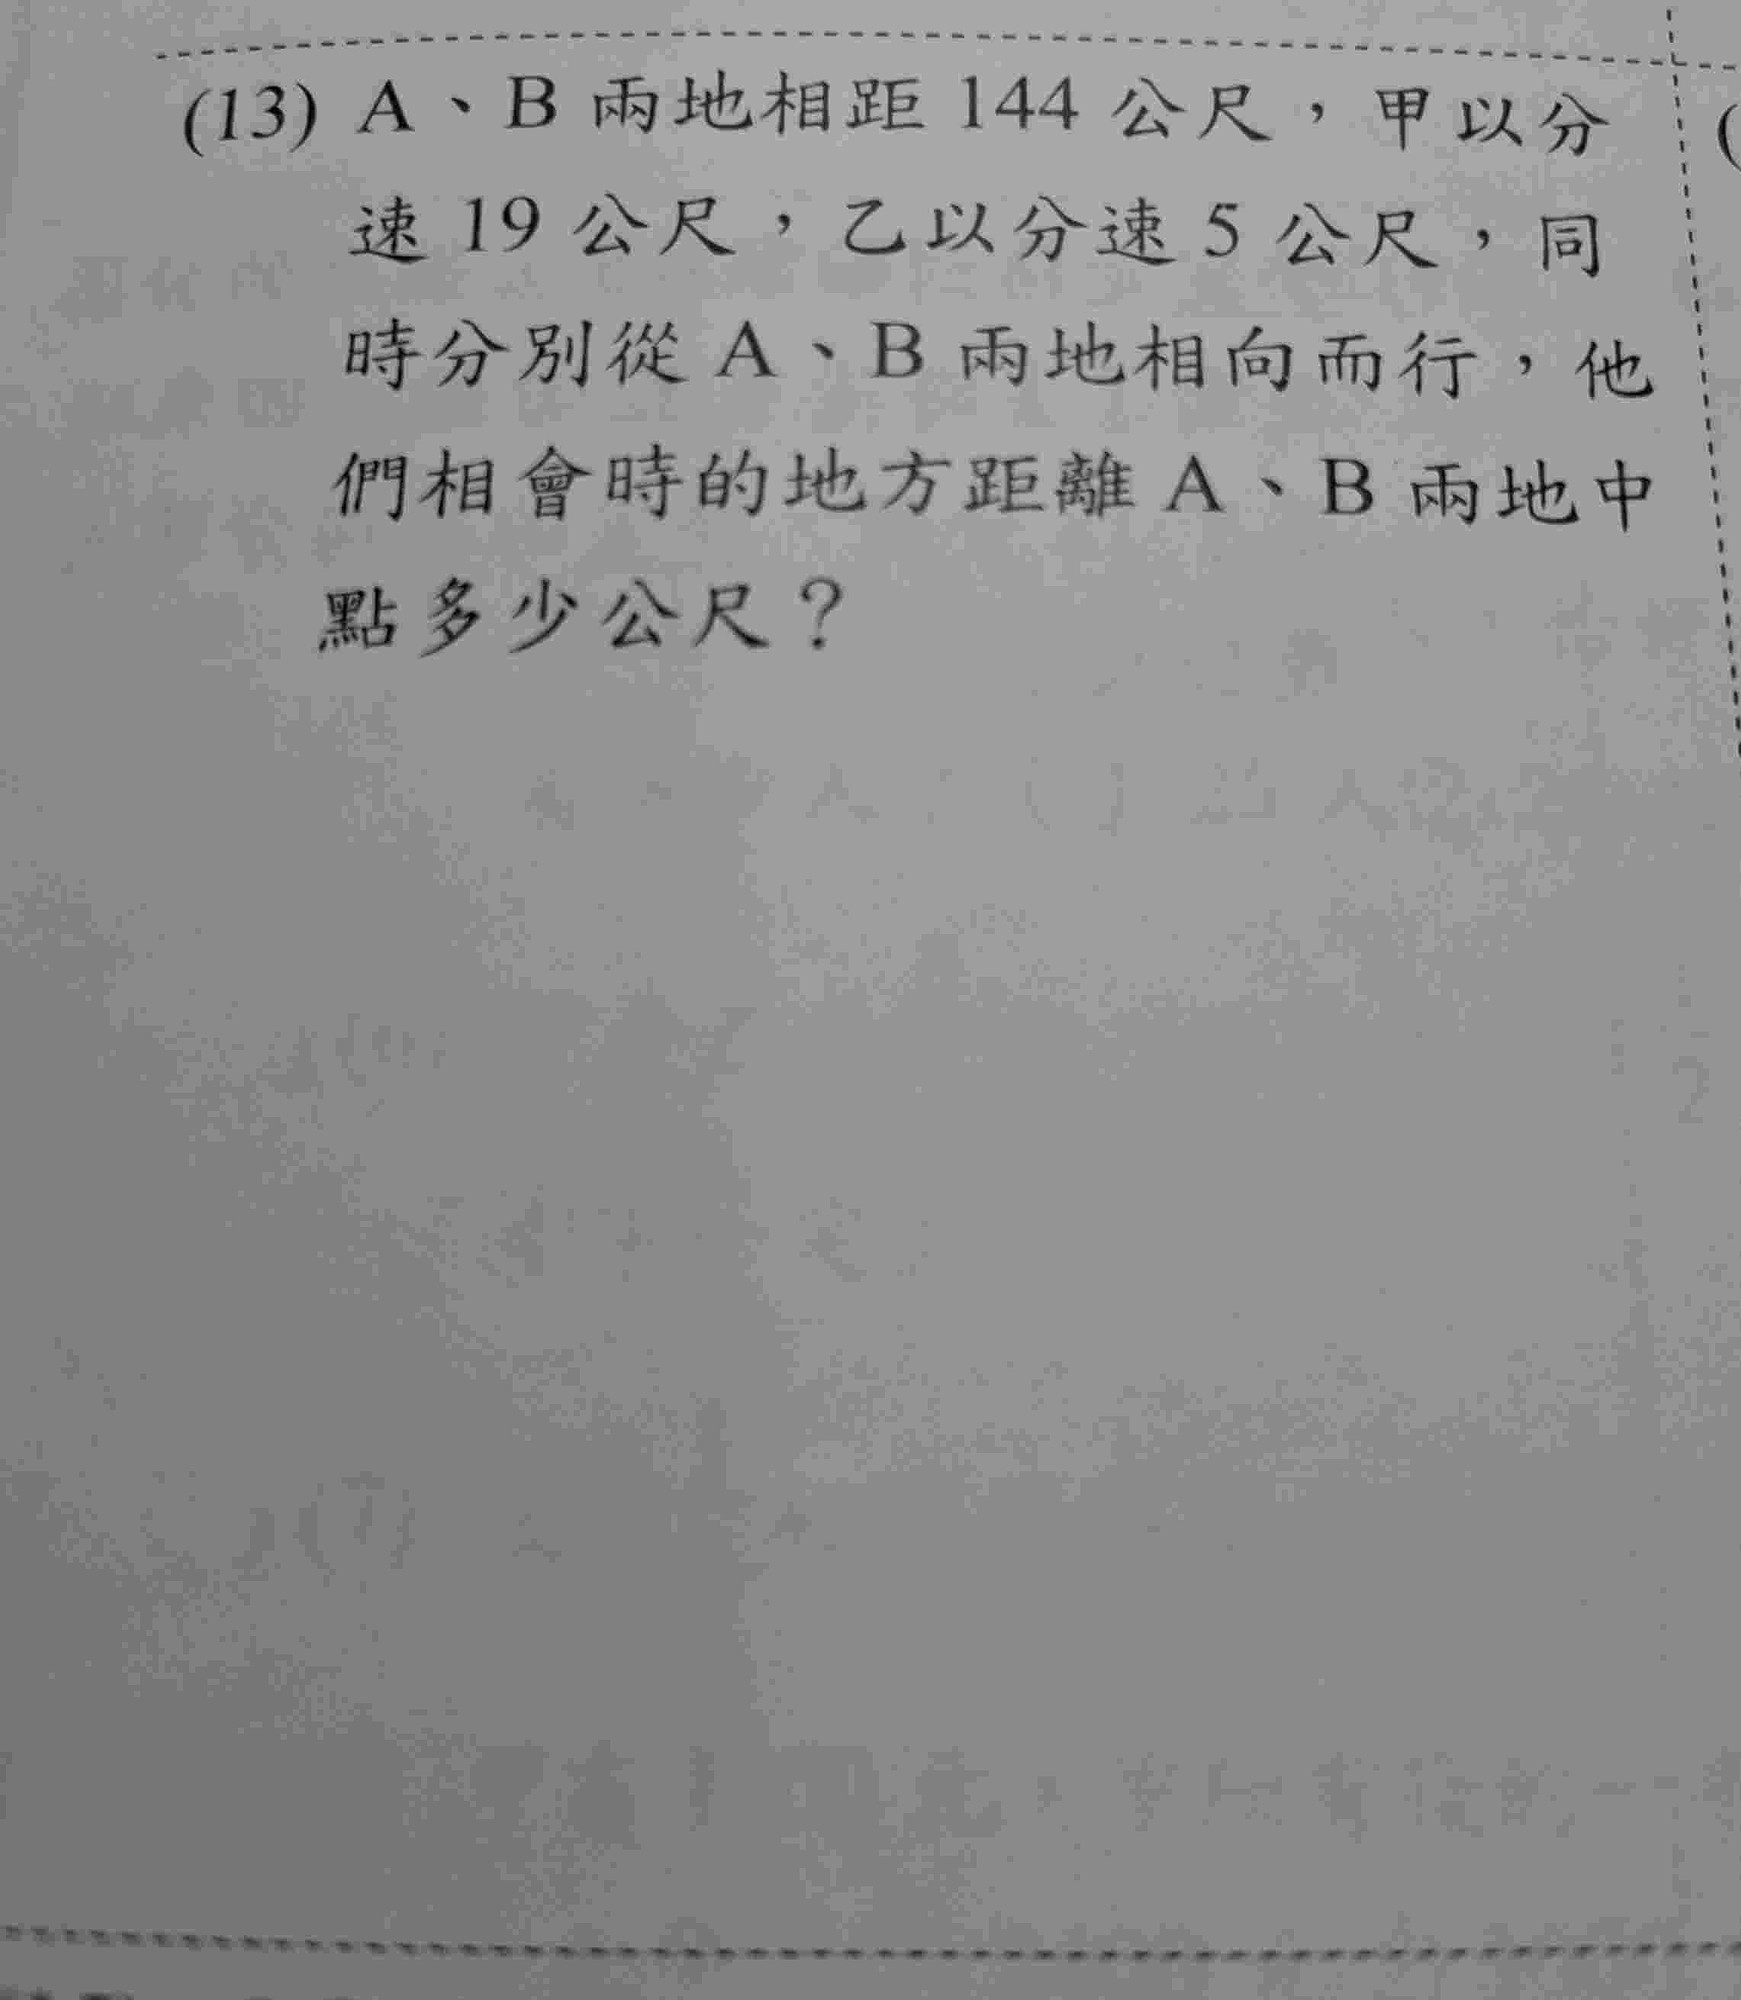 (13) A、B 兩地相距 144 公尺，甲以分
速 19 公尺，乙以分速 5 公尺，同
時分別從 A、B 兩地相向而行，他
們相會時的地方距離 A、B 兩地中
點多少公尺？